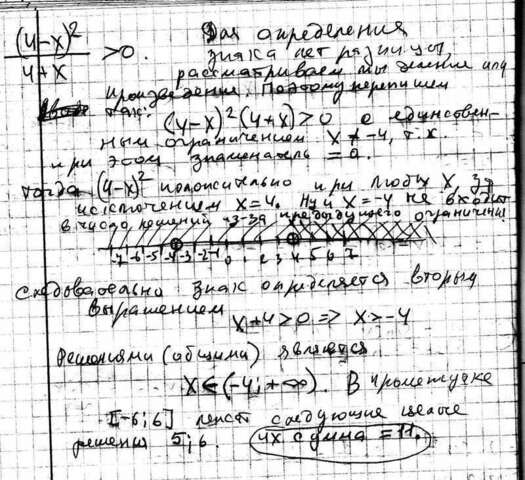 (4-x)² / 4+x > 0. Для определения
знака нет разницы,
рассматриваем мы деление или
произведение. Поэтому перепишем
так:
(4-x)²(4+x)>0 с единствен-
ным ограничением x ≠ -4, т.к.
при этом знаменатель = 0.
Тогда (4-x)² положительно при любых x, за
исключением x=4. Ну и x=-4 не входит
в число решений из-за предыдущего ограничения
-7 -6 -5 -4 -3 -2 -1 0 1 2 3 4 5 6 7
Следовательно знак определяется вторым
выражением
x+4>0 => x>-4
Решениями (общими) является
x∈(-4;+∞). В промежутке
[-6;6] лежат следующие целые
решения 5;6. Их сумма = 11.